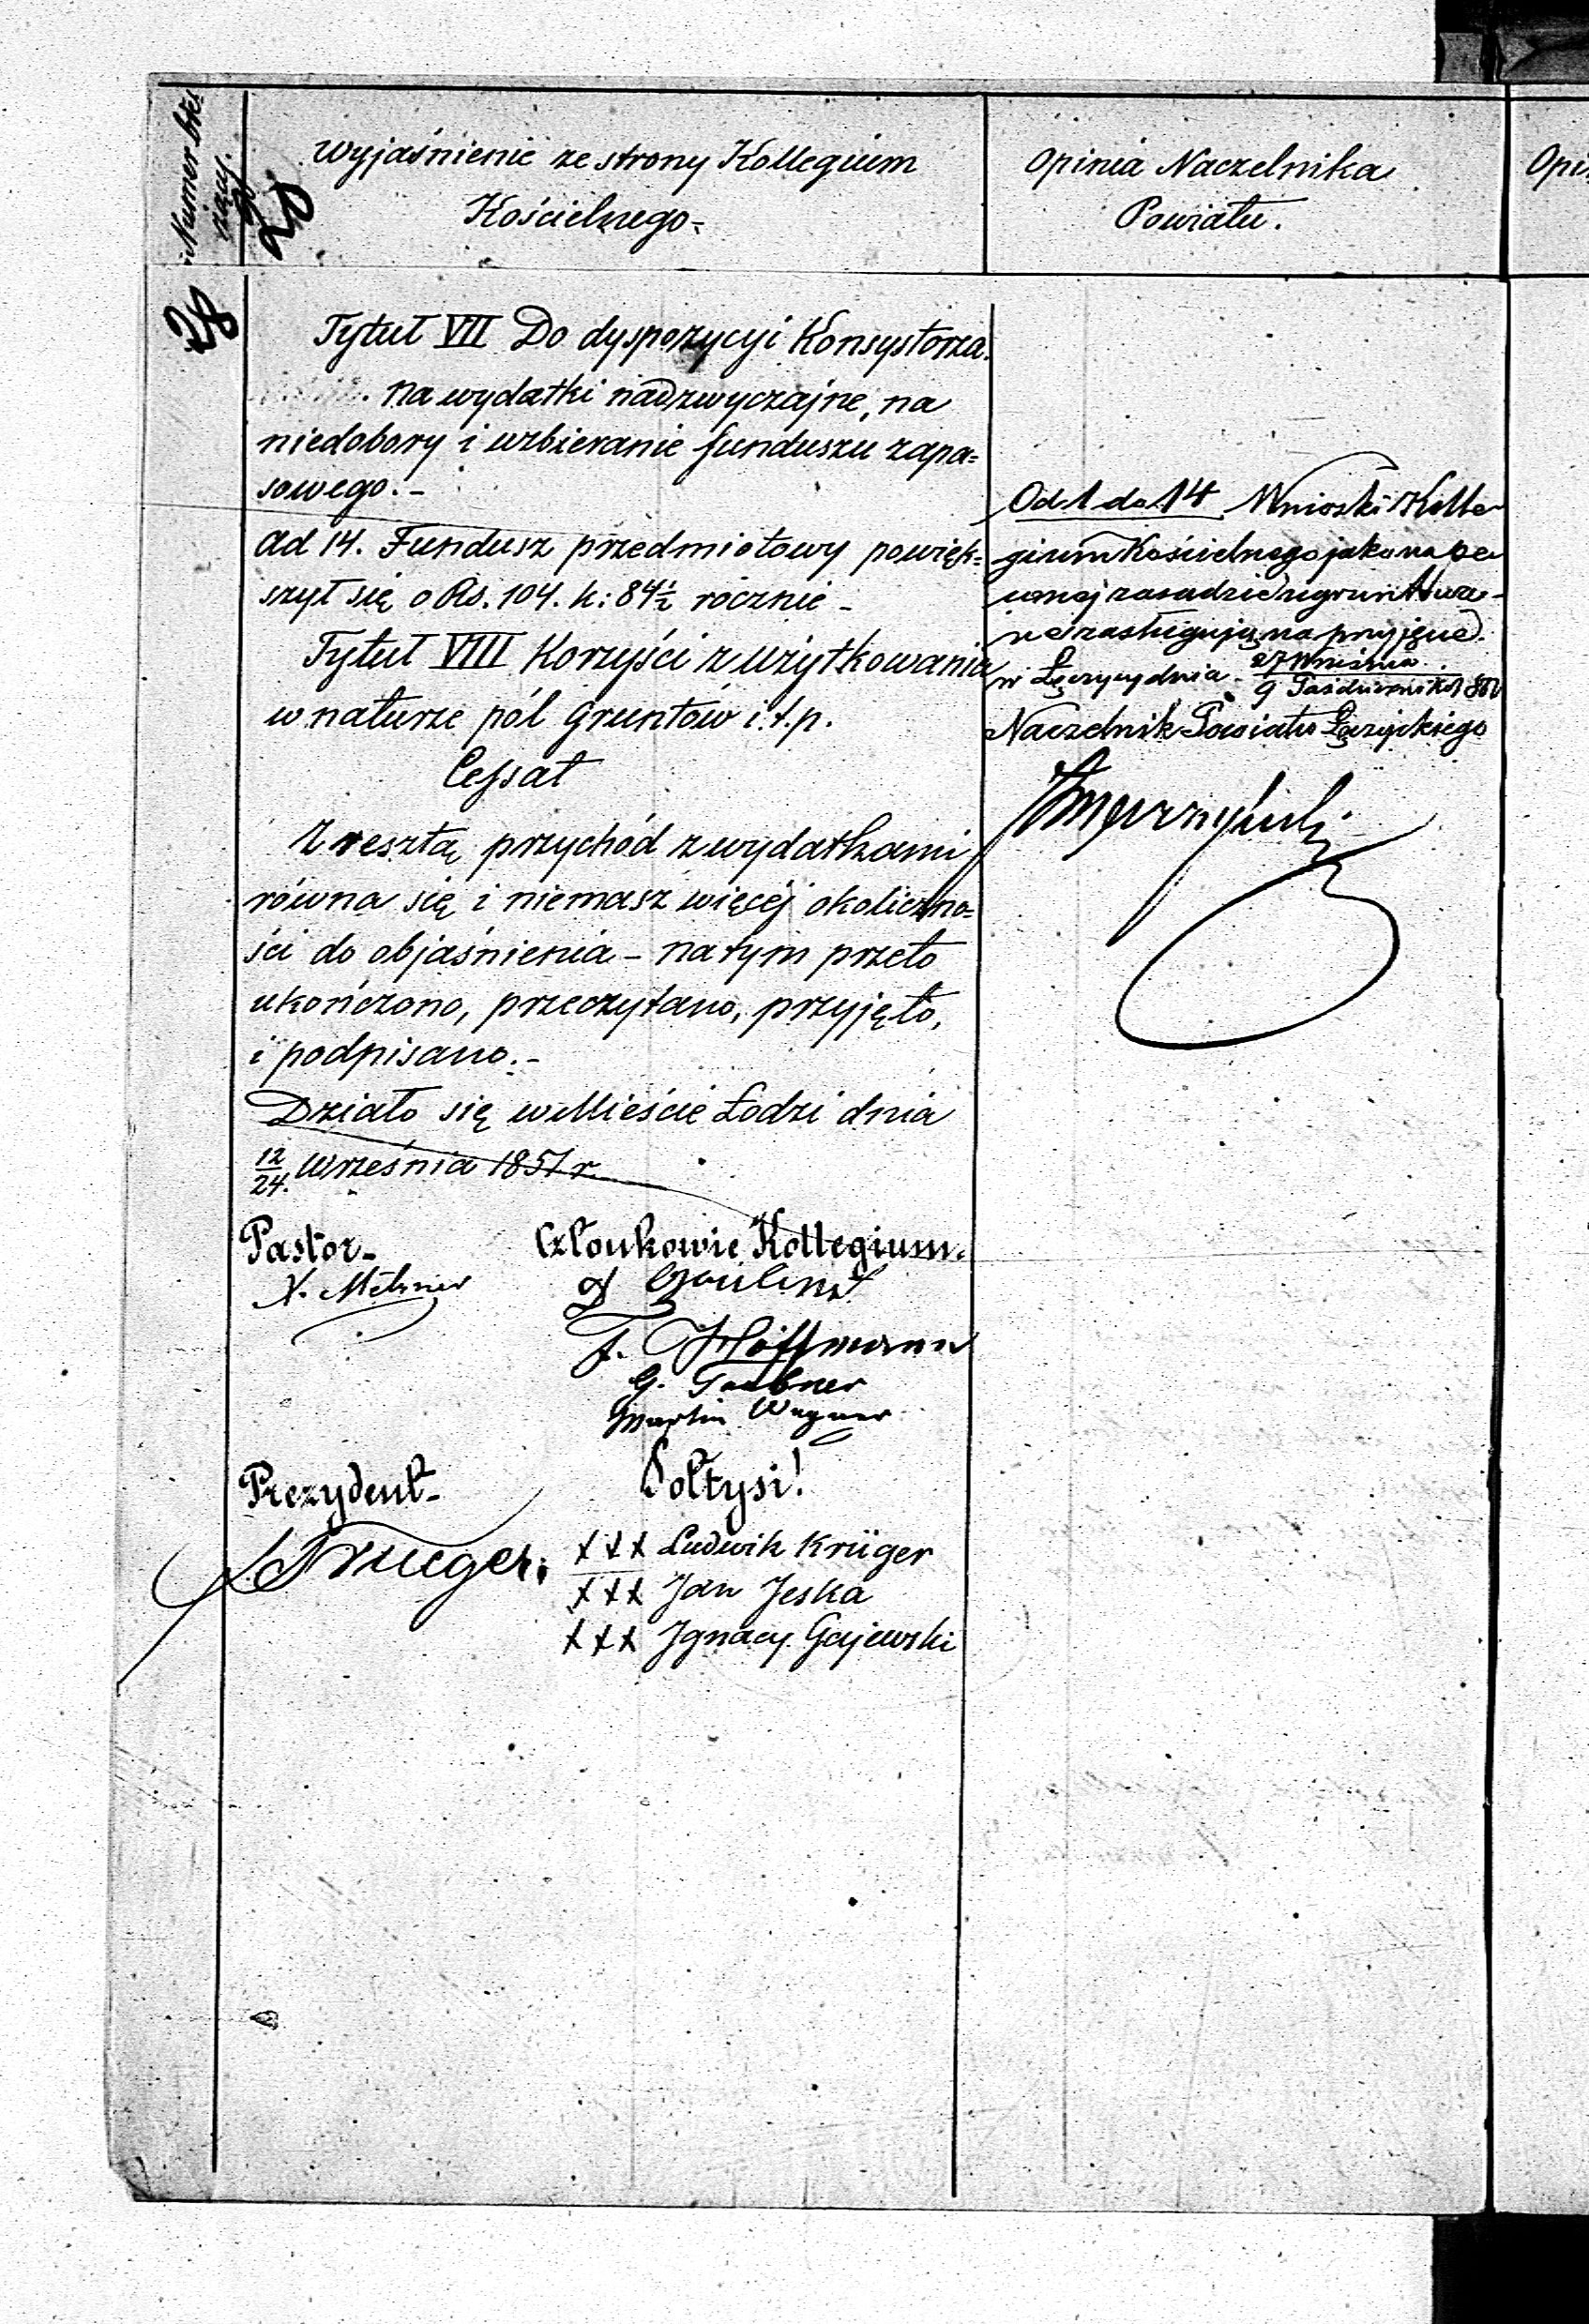 Numer bie
żący.
28
Wyjaśnienie ze strony Kollegium
Kościelnego
Opinia Naczelnika
Powiatu.
Opi
28
Tytuł VII Do dyspozycyi Konsystorza.
na wydatki nadzwyczajne, na
niedobory i uzbieranie funduszu zapa=
sowego.-
ad 14. Fundusz przedmiotowy powięk=
szył się o Rs. 104. k: 84½ rocznie -
Tytuł VIII Korzyści z użytkowania
w naturze pól Gruntów i.t.p.
Cessat
Zresztą przychód z wydatkami
równa się i niemasz więcéj okoliczno=
ści do objaśnienia - na tym przeto
ukończono, przeczytano, przyjęto,
i podpisano.-
Działo się w Mieście Łodzi dnia
12/24. Września 1851 r.
Pastor-
Członkowie Kollegium.
F. Hoffmann
G. Taubner
Martin Wagner
Prezydent-
Sołtysi!
Traeger.
XXX Ludwik Krüger
XXX Jan Jeska
XXX Jgnacy Gajewski
Od 1 do 14 Wnioski Kolle
gium Kościelnego jako na pe
wnej zasadzie ugruntowa-
ne zasługują na przyjęcie.
w Łęczycy dnia 27 Września / 9 Październik 1851
Naczelnik Powiatu Łęczyckiego